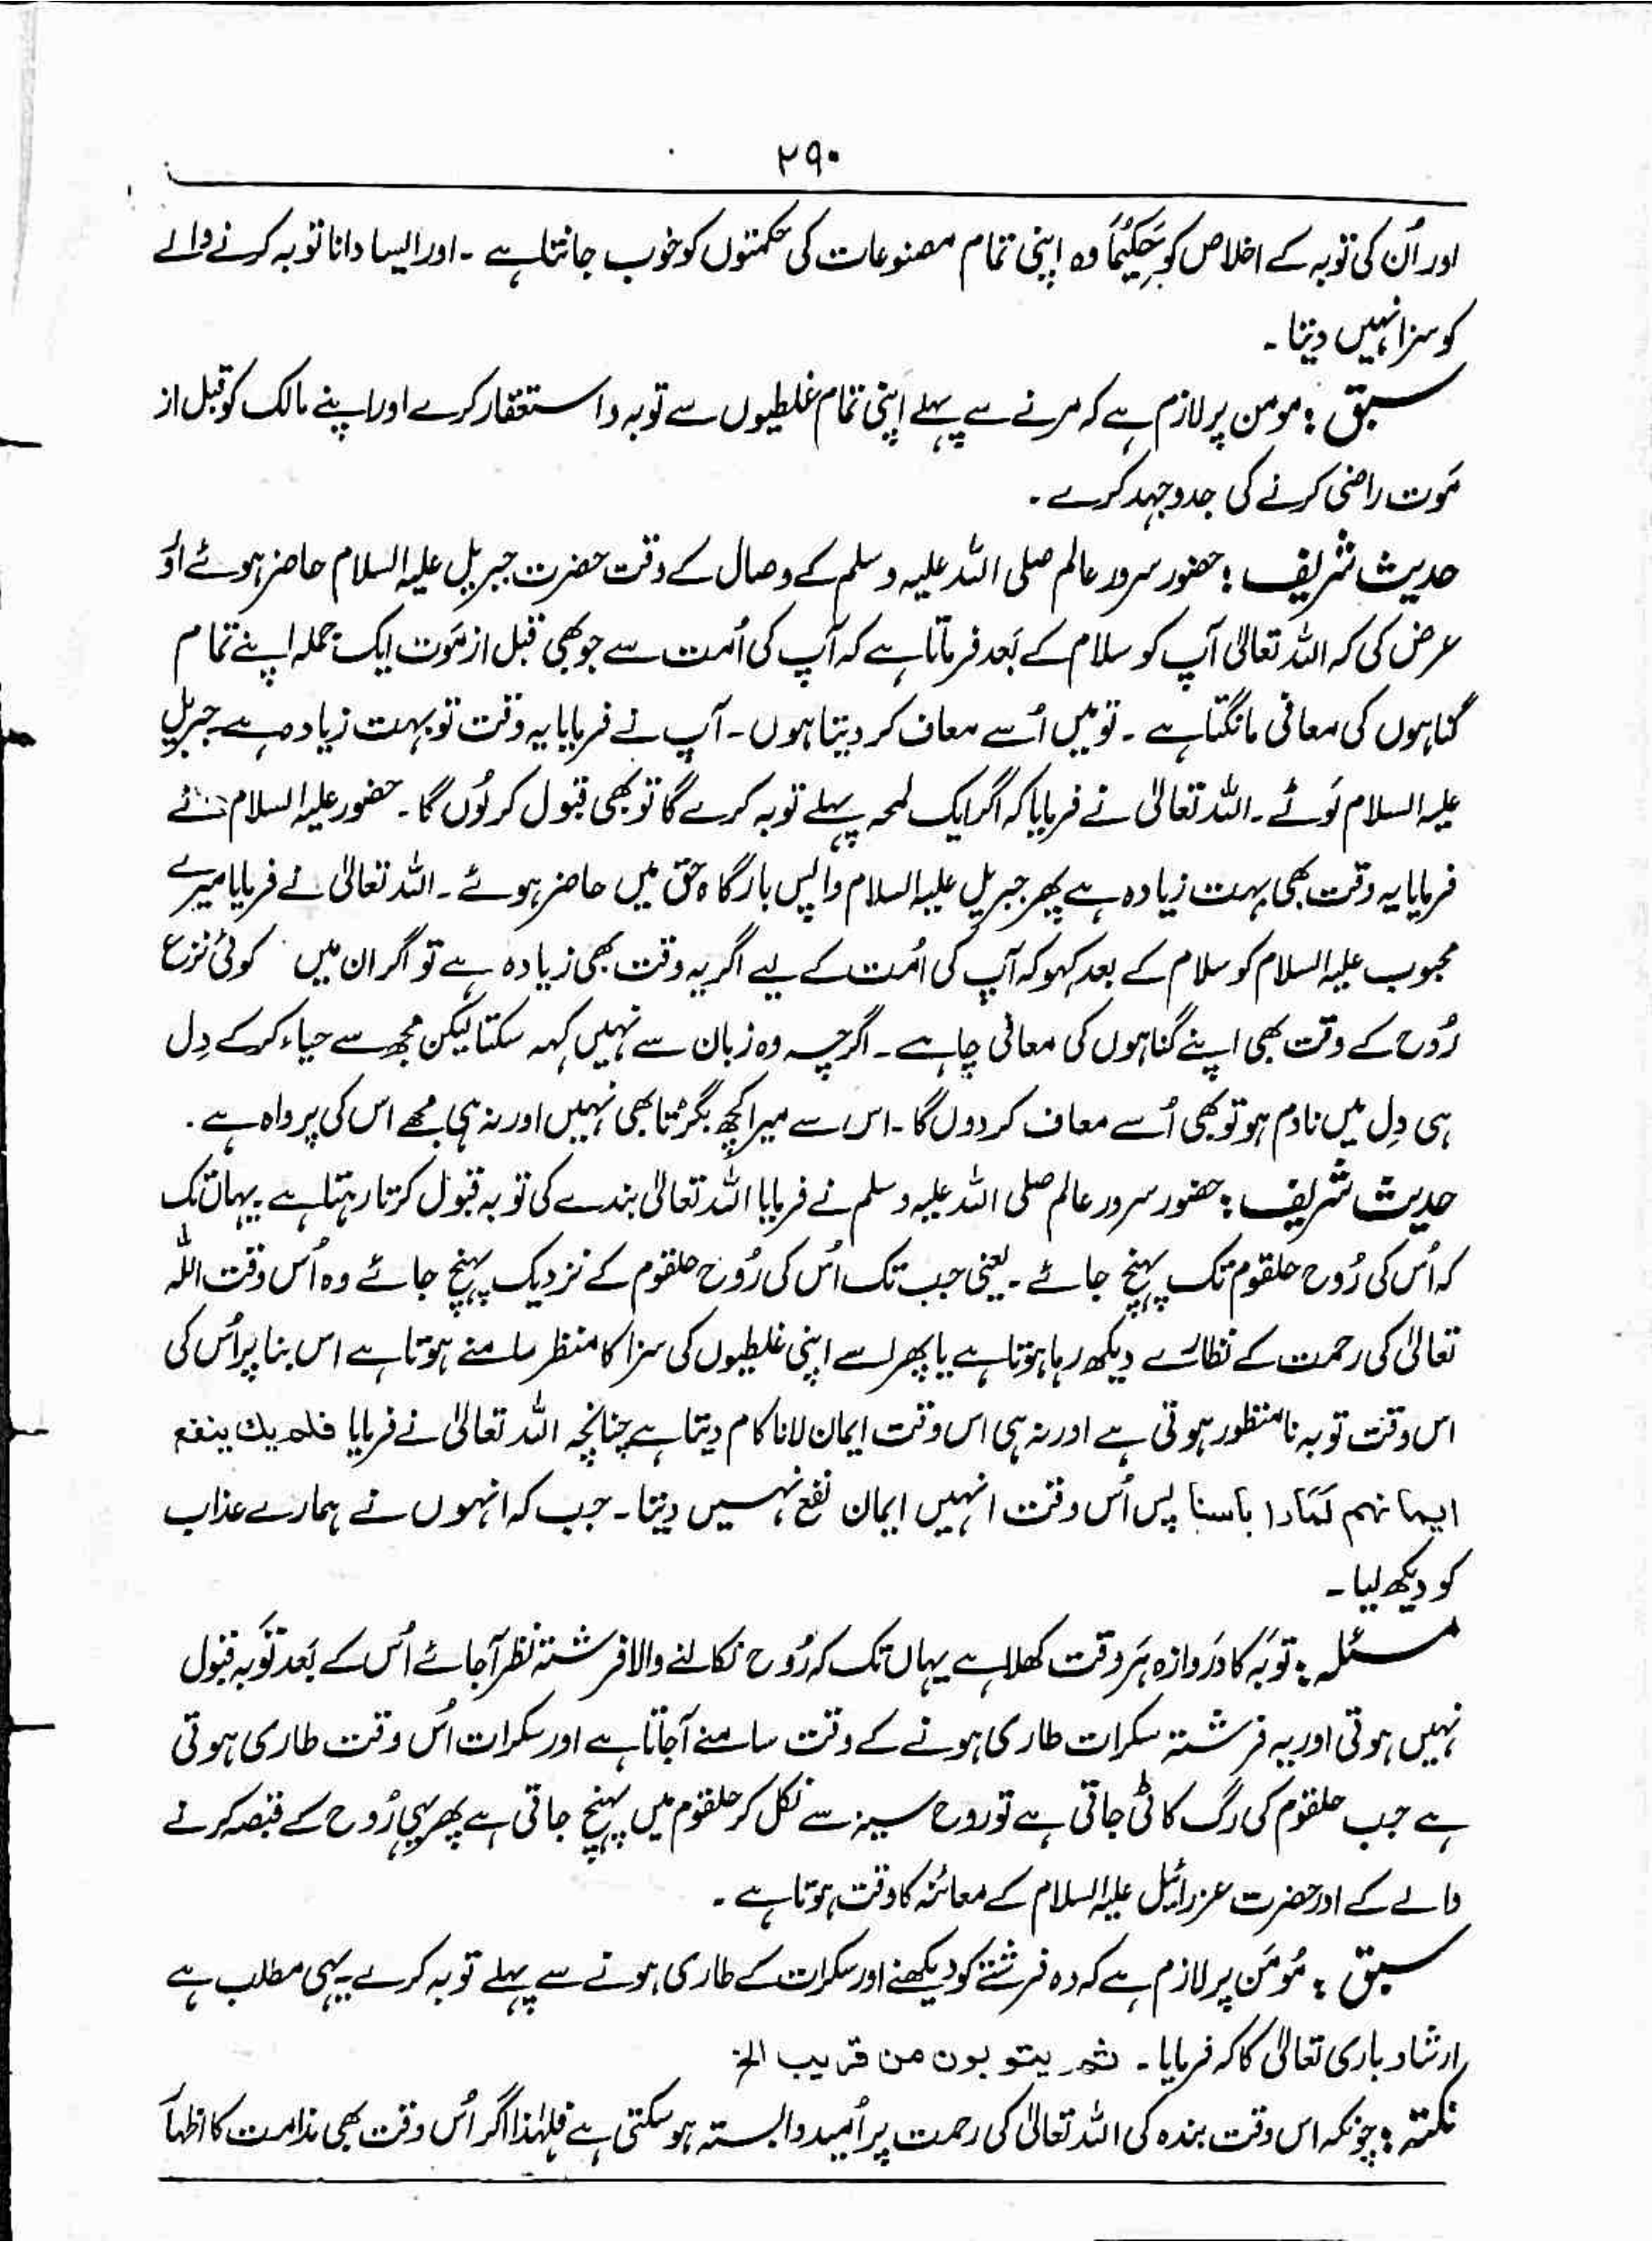 ۲۹۰
اور اُن کی توبہ کے اخلاص کو حَکِیْمًا وہ اپنی تمام مصنوعات کی حکمتوں کو خوب جانتا ہے ۔ اور ایسا دانا توبہ کرنے والے
کو سزا نہیں دیتا ۔
سبق : مومن پر لازم ہے کہ مرنے سے پہلے اپنی تمام غلطیوں سے توبہ و استغفار کرے اور اپنے مالک کو قبل از
مَوت راضی کرنے کی جدوجہد کرے ۔
حدیث شریف : حضور سرور عالم صلی اللہ علیہ وسلم کے وصال کے وقت حضرت جبریل علیہ السلام حاضر ہوئے اوَ
عرض کی کہ اللہ تعالیٰ آپ کو سلام کے بَعد فرماتا ہے کہ آپ کی اُمت سے جو بھی قبل از مَوت ایک جملہ اپنے تمام
گناہوں کی معافی مانگتا ہے ۔ تو میں اُسے معاف کر دیتا ہوں ۔ آپ نے فرمایا یہ وقت تو بہت زیادہ ہے جبریل
علیہ السلام لَوٹے ۔ اللہ تعالیٰ نے فرمایا کہ اگر ایک لمحہ پہلے توبہ کرے گا تو بھی قبول کر لُوں گا ۔ حضور علیہ السلام نے
فرمایا یہ وقت بھی بہت زیادہ ہے پھر جبریل علیہ السلام واپس بارگاہ حق میں حاضر ہوئے ۔ اللہ تعالیٰ نے فرمایا میرے
محبوب علیہ السلام کو سلام کے بعد کہو کہ آپ کی اُمت کے لیے اگر یہ وقت بھی زیادہ ہے تو اگر ان میں کوئی نزع
رُوح کے وقت بھی اپنے گناہوں کی معافی چاہے ۔ اگرچہ وہ زبان سے نہیں کہہ سکتا لیکن مجھ سے حیاء کر کے دِل
ہی دِل میں نادم ہو تو بھی اُسے معاف کر دوں گا ۔ اس سے میرا کچھ بگڑتا بھی نہیں اور نہ ہی مجھے اس کی پرواہ ہے ۔
حدیث شریف : حضور سرور عالم صلی اللہ علیہ وسلم نے فرمایا اللہ تعالیٰ بندے کی توبہ قبول کرتا رہتا ہے یہاں تک
کہ اُس کی رُوح حلقوم تک پہنچ جائے ۔ یعنی جب تک اُس کی رُوح حلقوم کے نزدیک پہنچ جائے وہ اُس وقت اللہ
تعالیٰ کی رحمت کے نظارے دیکھ رہا ہوتا ہے یا پھر اسے اپنی غلطیوں کی سزا کا منظر سامنے ہوتا ہے اس بنا پر اُس کی
اس وقت توبہ نامنظور ہوتی ہے اور نہ ہی اس وقت ایمان لانا کام دیتا ہے چنانچہ اللہ تعالیٰ نے فرمایا فلم یك ینفع
ایمانہم لَمّا راَ وا باسنا پس اُس وقت انہیں ایمان نفع نہیں دیتا ۔ جب کہ انہوں نے ہمارے عذاب
کو دیکھ لیا ۔
مسئلہ : توبَہ کا دَروازہ ہَر وقت کھلا ہے یہاں تک کہ رُوح نکالنے والا فرشتہ نظر آجائے اُس کے بَعد تَوبہ قبول
نہیں ہوتی اور یہ فرشتہ سکرات طاری ہونے کے وقت سامنے آجاتا ہے اور سکرات اُس وقت طاری ہوتی
ہے جب حلقوم کی رگ کاٹی جاتی ہے تو روح سینہ سے نکل کر حلقوم میں پہنچ جاتی ہے پھر یہی رُوح کے قبضہ کرنے
والے کے اور حضرت عزرائیل علیہ السلام کے معائنہ کا وقت ہوتا ہے ۔
سبق : مُومَن پر لازم ہے کہ وہ فرشتے کو دیکھنے اور سکرات کے طاری ہونے سے پہلے توبہ کرے یہی مطلب ہے
ارشاد باری تعالیٰ کا کہ فرمایا ۔ ثم یتوبون من قریب الخ
نکتہ : چونکہ اس وقت بندہ کی اللہ تعالیٰ کی رحمت پر اُمید وابستہ ہو سکتی ہے فلہٰذا اگر اُس وقت بھی ندامت کا اظہاَ